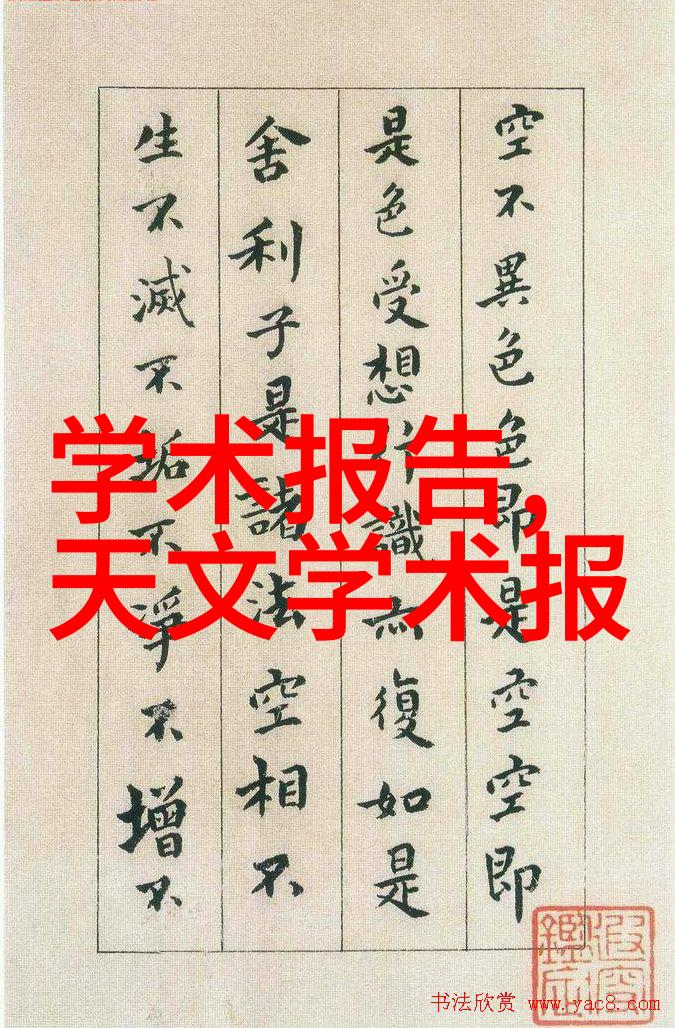 空不異色色即是空空即
是色受想行識亦復如是
舍利子是諸法空相不
生不滅不垢不淨不增不
学术报告,
天文学术报
书法欣赏 www.yac8.com